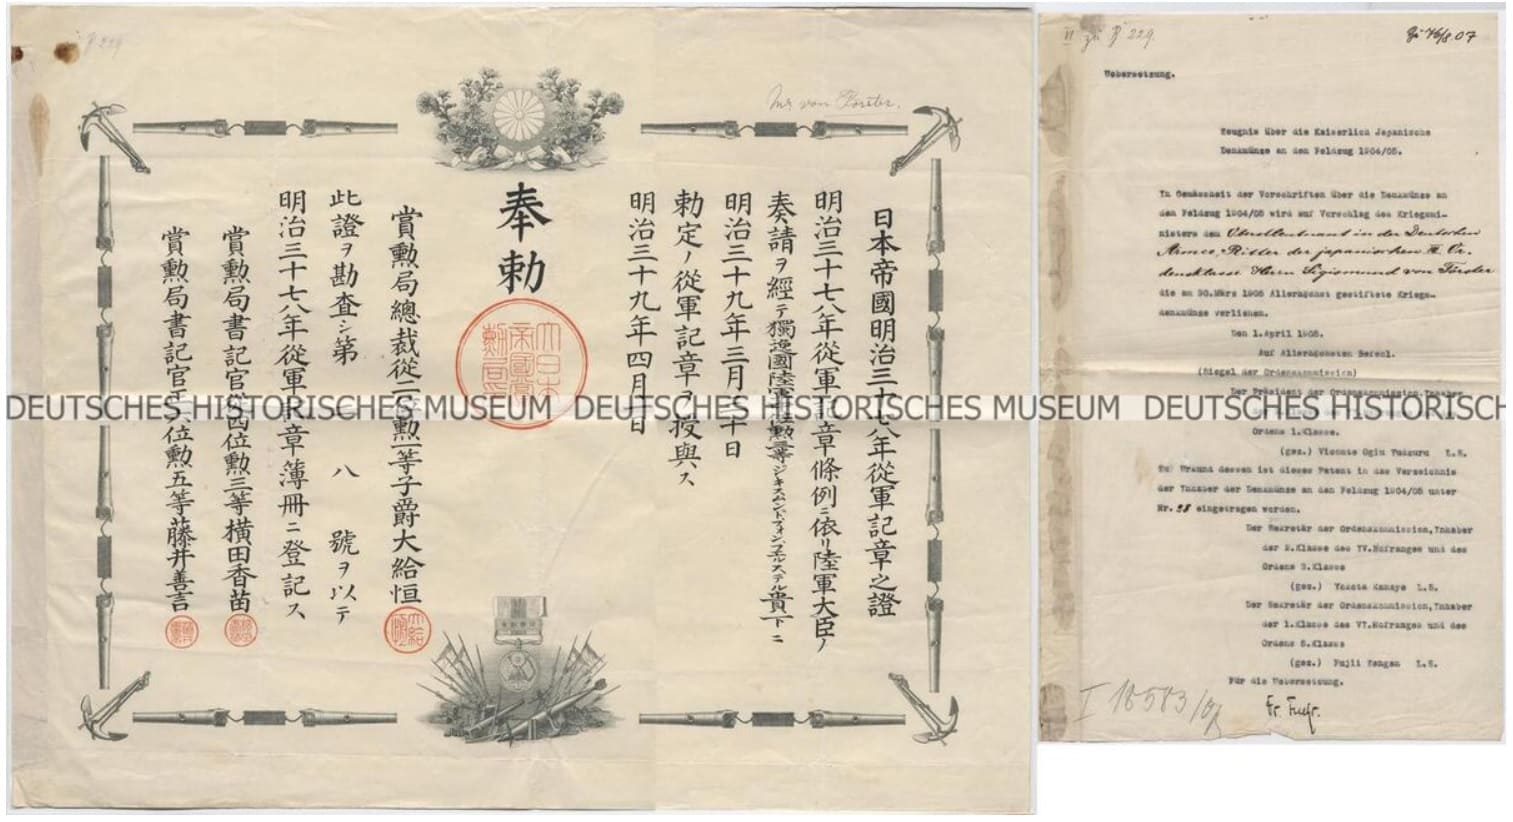 日本帝國明治三十七八年從軍記章之證
明治三十七八年從軍記章條例ニ依リ陸軍大臣ノ
奏請ヲ經テ獨逸國陸軍 勳三等ジキスムンド、フォン、フェルステル貴下ニ
明治三十九年三月三十日
勅定ノ從軍記章ヲ授與ス
明治三十九年四月一日
奉勅
大日本帝國賞勳局印
賞勳局總裁從二位勳一等子爵大給恒
此證ヲ勘査シ第 二八 號ヲ以テ
明治三十七八年從軍記章簿冊ニ登記ス
賞勳局書記官 四位勳三等橫田香苗
賞勳局書記官正六位勳五等藤井善言
von Förster.
Z 229
VI zu Z 229.
07
Uebersetzung.
Zeugnis über die Kaiserlich Japanische
Denkmünze an den Feldzug 1904/05.
In Gemässheit der Vorschriften über die Denkmünze an
den Feldzug 1904/05 wird auf Vorschlag des Kriegsmi-
nisters dem Oberstleutnant in der Deutschen
Armee, Ritter der japanischen III. Or-
densklasse Herrn Sigismund von Förster
die am 30.März 1906 Allerhöchst gestiftete Kriegs-
denkmünze verliehen.
Den 1.April 1906.
Auf Allerhöchsten Befehl.
(Siegel der Ordenskommission)
Der Präsident der Ordenskommission, Inhaber
Ordens 1.Klasse.
(gez.) Vicomte Ogiu Yuzuru L.S.
Zu Urkund dessen ist dieses Patent in das Verzeichnis
der Inhaber der Denkmünze an den Feldzug 1904/05 unter
Nr. 28 eingetragen worden.
Der Sekretär der Ordenskommission,Inhaber
der 2.Klasse des IV.Hofranges und des
Ordens 3.Klasse
(gez.) Yokota Kanaye L.S.
Der Sekretär der Ordenskommission,Inhaber
der 1.Klasse des VI.Hofranges und des
Ordens 5.Klasse
(gez.) Fujii Zengen L.S.
Für die Uebersetzung.
I 18583/07
DEUTSCHES HISTORISCHES MUSEUM DEUTSCHES HISTORISCHES MUSEUM DEUTSCHES HISTORISCH